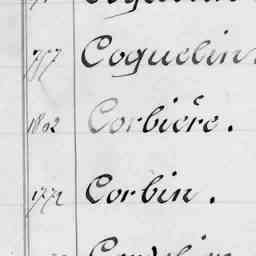 757 Coquelin.
1802 Corbière.
1771 Corbin.